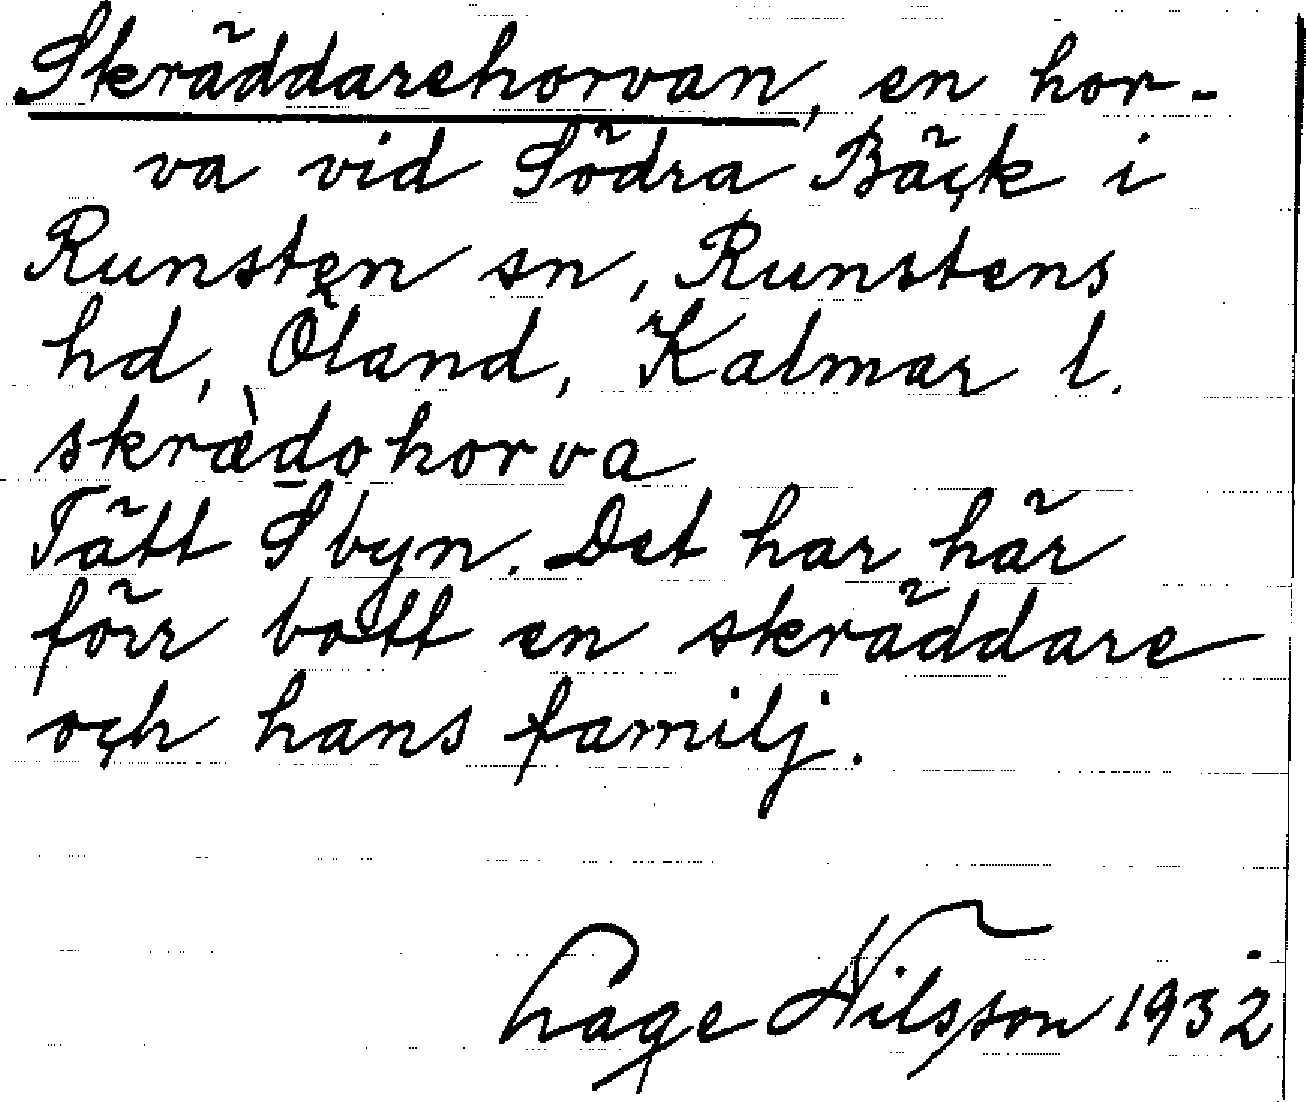 Skräddarehorvan, en hor-
va vid Södra Bäck i
Runsten sn, Runstens
hd, Öland, Kalmar l.
skrædohorva
Tätt S byn. Det har här
förr bott en skräddare
och hans familj.
Låge Nilsson 1932